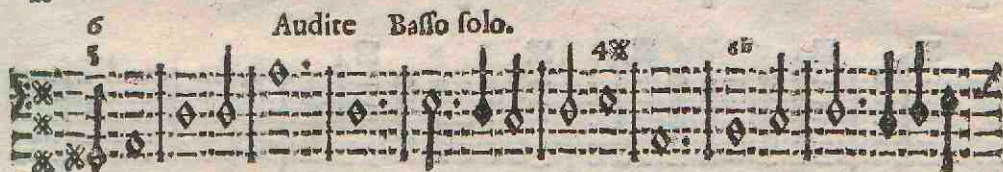 6 Audite Baſſo ſolo.
5 4※ 6b